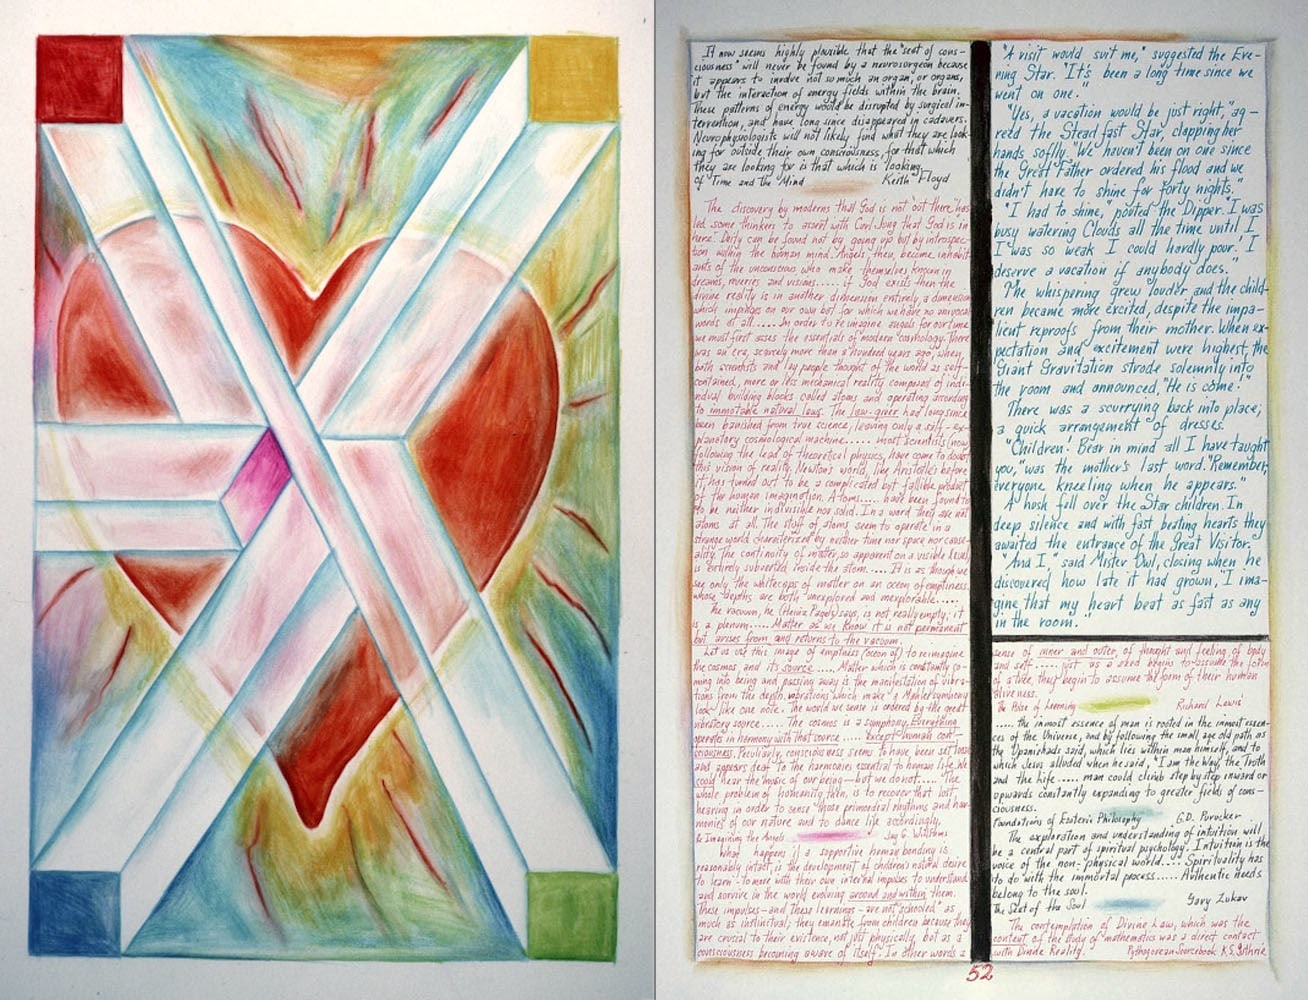 It now seems highly plausible that the "seat of cons-
ciousness" will never be found by a neurosurgeon because
it appears to involve not so much an organ, or organs,
but the interaction of energy fields within the brain.
These patterns of energy would be disrupted by surgical in-
tervention, and have long since disappeared in cadavers.
Neurophysiologists will not likely find what they are look-
ing for outside their own consciousness, for that which
they are looking for is that which is looking.
Of Time and the Mind Keith Floyd
The discovery by moderns that God is not "out there" has
led some thinkers to assert with Carl Jung that God is in
here. Deity can be found not by going up but by introspec-
tion within the human mind. Angels, then, become inhabit-
ants of the unconscious who make themselves known in
dreams, reveries and visions..... if God exists then the
divine reality is in another dimension entirely, a dimension
which impinges on our own but for which we have no univocal
words at all..... In order to re imagine angels for our time
we must first asses the essentials of modern cosmology. There
was an era, scarcely more than a hundred years ago, when
both scientists and lay people thought of the world as self-
contained, more or less mechanical reality composed of indi-
vidual building blocks called atoms and operating according
to immutable natural laws. The law-giver had long since
been banished from true science, leaving only a self-ex-
planatory cosmological machine..... most scientists (now)
following the lead of theoretical physics, have come to doubt
this vision of reality. Newton's world, like Aristotle's before
it, has turned out to be a complicated but fallible product
of the human imagination. Atoms..... have been found to
to be neither indivisible nor solid. In a word they are not
atoms at all. The stuff of atoms seem to operate in a
strange world characterized by neither time nor space nor cause-
ality. The continuity of matter, so apparent on a visible level,
is entirely subverted inside the atom..... It is as though we
see only the whitecaps of matter on an ocean of emptiness,
whose depths are both unexplored and inexplorable.....
The vacuum, he (Heinz Pagels) says, is not really empty; it
is a plenum..... Matter as we know it is not permanent
but arises from and returns to the vacuum.
Let us use this image of emptiness (ocean of) to reimagine
the cosmos, and its source..... Matter which is constantly co-
ming into being and passing away is the manifestation of vibra-
tions from the depth, vibrations which make a Mahler symphony
look like one note. The world we sense is ordered by the great
vibratory source..... The cosmos is a symphony. Everything
operates in harmony with that source..... except human con-
sciousness. Peculiarly, consciousness seems to have been set loose
and appears deaf to the harmonies essential to human life. We
could hear the music of our being—but we do not..... The
whole problem of humanity then, is to recover that lost
hearing in order to sense those primordial rhythms and har-
monies of our nature and to dance life accordingly.
Re Imagining the Angels Jay G. Williams
What happens if a supportive human bonding is
reasonably intact, is the development of children's natural desire
to learn - to move with their own internal impulses to understand
and survive in the world evolving around and within them.
These impulses—and these learnings—are not "schooled" as
much as instinctual; they emanate from children because they
are crucial to their existence, not just physically, but as a
consciousness becoming aware of itself. In other words a
"A visit would suit me," suggested the Eve-
ning Star. "It's been a long time since we
went on one."
"Yes, a vacation would be just right," ag-
reed the Steadfast Star, clapping her
hands softly. "We haven't been on one since
the Great Father ordered his flood and we
didn't have to shine for forty nights."
"I had to shine," pouted the Dipper. "I was
busy watering Clouds all the time until I
I was so weak I could hardly pour. I
deserve a vacation if anybody does."
The whispering grew louder and the child-
ren became more excited, despite the impa-
tient reproofs from their mother. When ex-
pectation and excitement were highest, the
Giant Gravitation strode solemnly into
the room and announced, "He is come!"
There was a scurrying back into place,
a quick arrangement of dresses.
"Children! Bear in mind all I have taught
you," was the mother's last word. "Remember,
everyone kneeling when he appears."
A hush fell over the Star children. In
deep silence and with fast beating hearts they
awaited the entrance of the Great Visitor.
"And I," said Mister Owl, closing when he
discovered how late it had grown, "I ima-
gine that my heart beat as fast as any
in the room."
sense of inner and outer, of thought and feeling of body
and self..... just as a seed begins to assume the form
of a tree, they begin to assume the form of their human
aliveness.
The Pulse of Learning Richard Lewis
..... the inmost essence of man is rooted in the inmost essen-
ces of the Universe, and by following the small, age old path as
the Upanishads said, which lies within man himself, and to
which Jesus alluded when he said, "I am the Way, the Truth
and the Life..... man could climb step by step inward or
upwards constantly expanding to greater fields of cons-
ciousness.
Foundations of Esoteric Philosophy G.D. Purucker
The exploration and understanding of intuition will
be a central part of spiritual psychology. Intuition is the
voice of the non-physical world..... Spirituality has
to do with the immortal process..... Authentic needs
belong to the soul.
The Seat of the Soul Gary Zukav
The contemplation of Divine Law, which was the
content of the study of mathematics was a direct contact
with Divine Reality. Pythagorean Sourcebook K.S. Guthrie
52